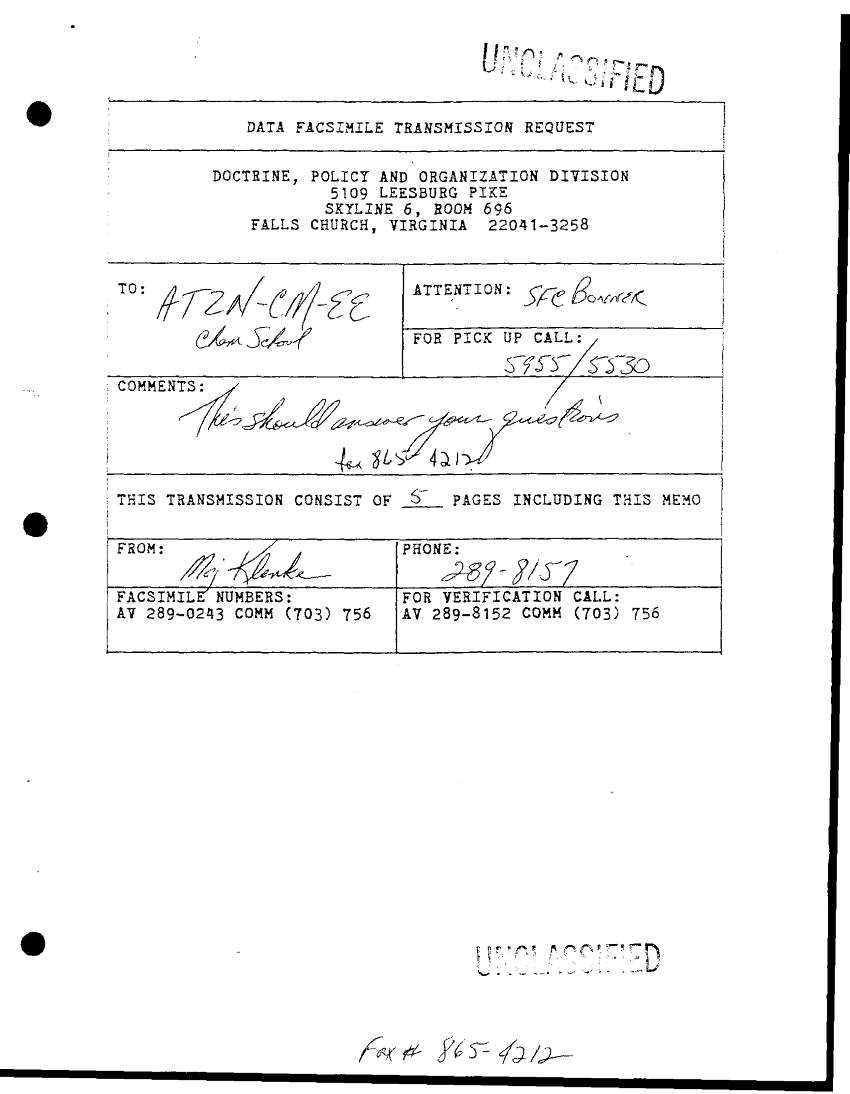 UNCLASSIFIED
DATA FACSIMILE TRANSMISSION REQUEST
DOCTRINE, POLICY AND ORGANIZATION DIVISION
5109 LEESBURG PIKE
SKYLINE 6, ROOM 696
FALLS CHURCH, VIRGINIA 22041-3258
TO: ATZN-CM-EE
Chem School
ATTENTION: SFC Bonner
FOR PICK UP CALL:
5955/5530
COMMENTS:
This should answer your questions
fax 865-4212
THIS TRANSMISSION CONSIST OF 5 PAGES INCLUDING THIS MEMO
FROM: Maj Klenke
PHONE: 289-8157
FACSIMILE NUMBERS:
AV 289-0243 COMM (703) 756
FOR VERIFICATION CALL:
AV 289-8152 COMM (703) 756
UNCLASSIFIED
Fax # 865-4212